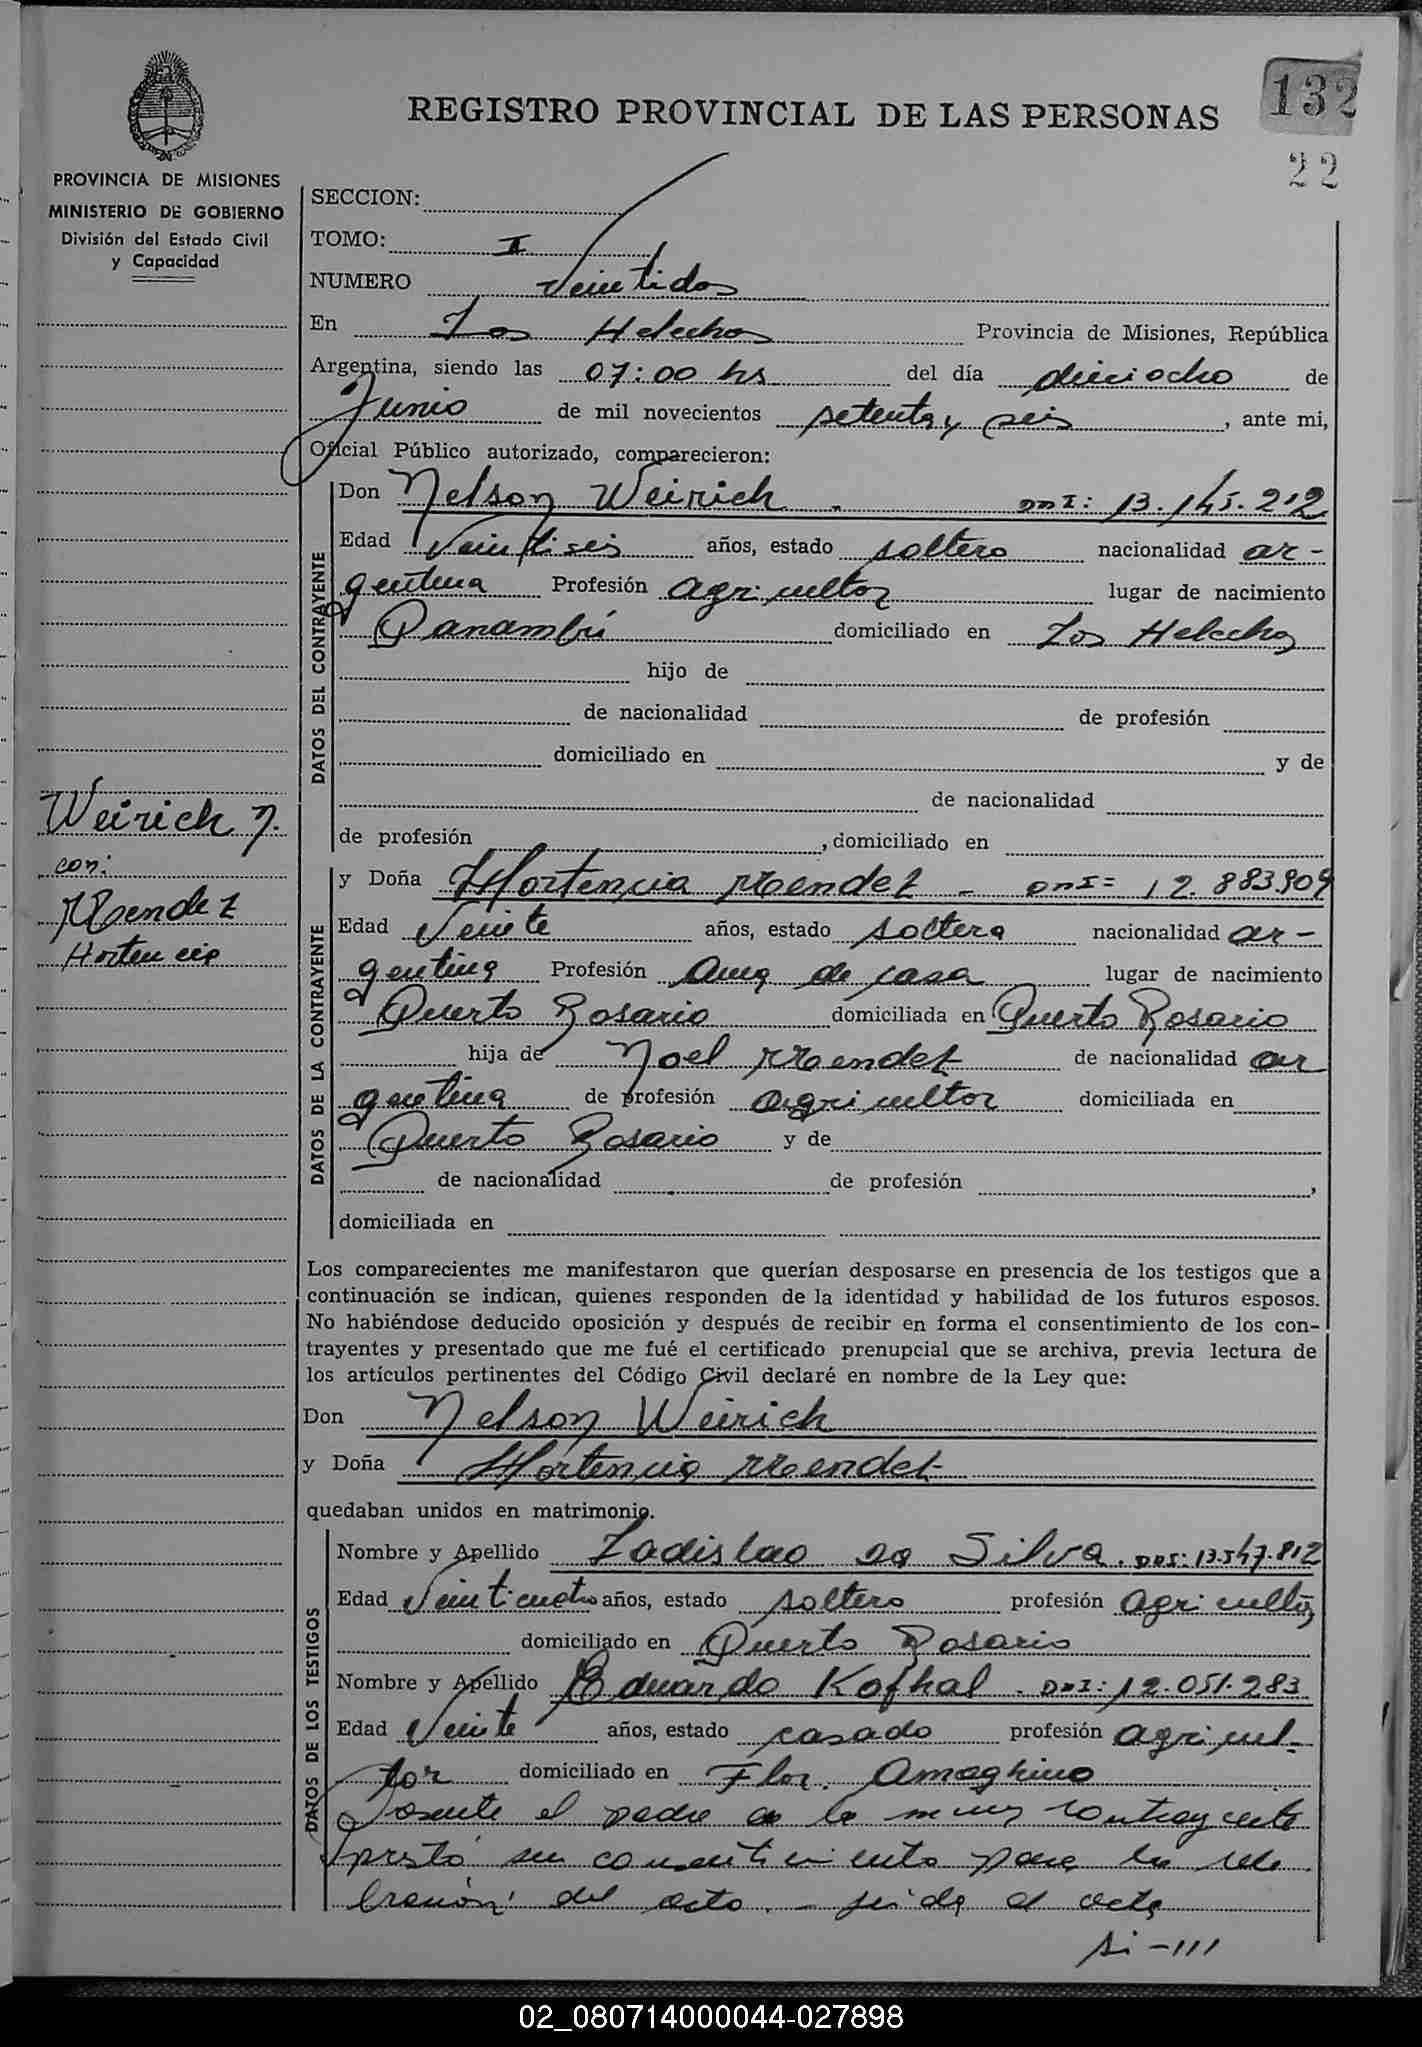 132
REGISTRO PROVINCIAL DE LAS PERSONAS
22
PROVINCIA DE MISIONES
MINISTERIO DE GOBIERNO
División del Estado Civil
y Capacidad
SECCION:
TOMO: I
NUMERO Veintidos
En Los Helechos Provincia de Misiones, República
Argentina, siendo las 07:00 hs del día dieciocho de
Junio de mil novecientos setenta y seis, ante mi,
Oficial Público autorizado, comparecieron:
DATOS DEL CONTRAYENTE
Don Nelson Weirich. DNI: 13.145.212
Edad Veintiseis años, estado soltero nacionalidad ar-
gentina Profesión agricultor lugar de nacimiento
Panambí domiciliado en Los Helechos
hijo de
de nacionalidad de profesión
domiciliado en y de
de nacionalidad
de profesión , domiciliado en
Weirich N.
con:
Mendez
Hortencia
DATOS DE LA CONTRAYENTE
y Doña Hortencia Mendez - DNI= 12.883.909
Edad Veinte años, estado soltera nacionalidad ar-
gentina Profesión ama de casa lugar de nacimiento
Puerto Rosario domiciliada en Puerto Rosario
hija de Noel Mendez de nacionalidad ar
gentina de profesión agricultor domiciliada en
Puerto Rosario y de
de nacionalidad de profesión ,
domiciliada en
Los comparecientes me manifestaron que querían desposarse en presencia de los testigos que a
continuación se indican, quienes responden de la identidad y habilidad de los futuros esposos.
No habiéndose deducido oposición y después de recibir en forma el consentimiento de los con-
trayentes y presentado que me fué el certificado prenupcial que se archiva, previa lectura de
los artículos pertinentes del Código Civil declaré en nombre de la Ley que:
Don Nelson Weirich
y Doña Hortencia Mendez
quedaban unidos en matrimonio.
DATOS DE LOS TESTIGOS
Nombre y Apellido Ladislao da Silva. DNI: 13.547.812
Edad Veinticuatro años, estado soltero profesión agricultor
domiciliado en Puerto Rosario
Nombre y Apellido Eduardo Kofhal. DNI: 12.051.283
Edad Veinte años, estado casado profesión agricul-
tor domiciliado en Flor. Ameghino
Presente el padre de la menor contrayente
prestó su consentimiento para la cele
bración del acto. - leida el acta
si -///
02_080714000044-027898